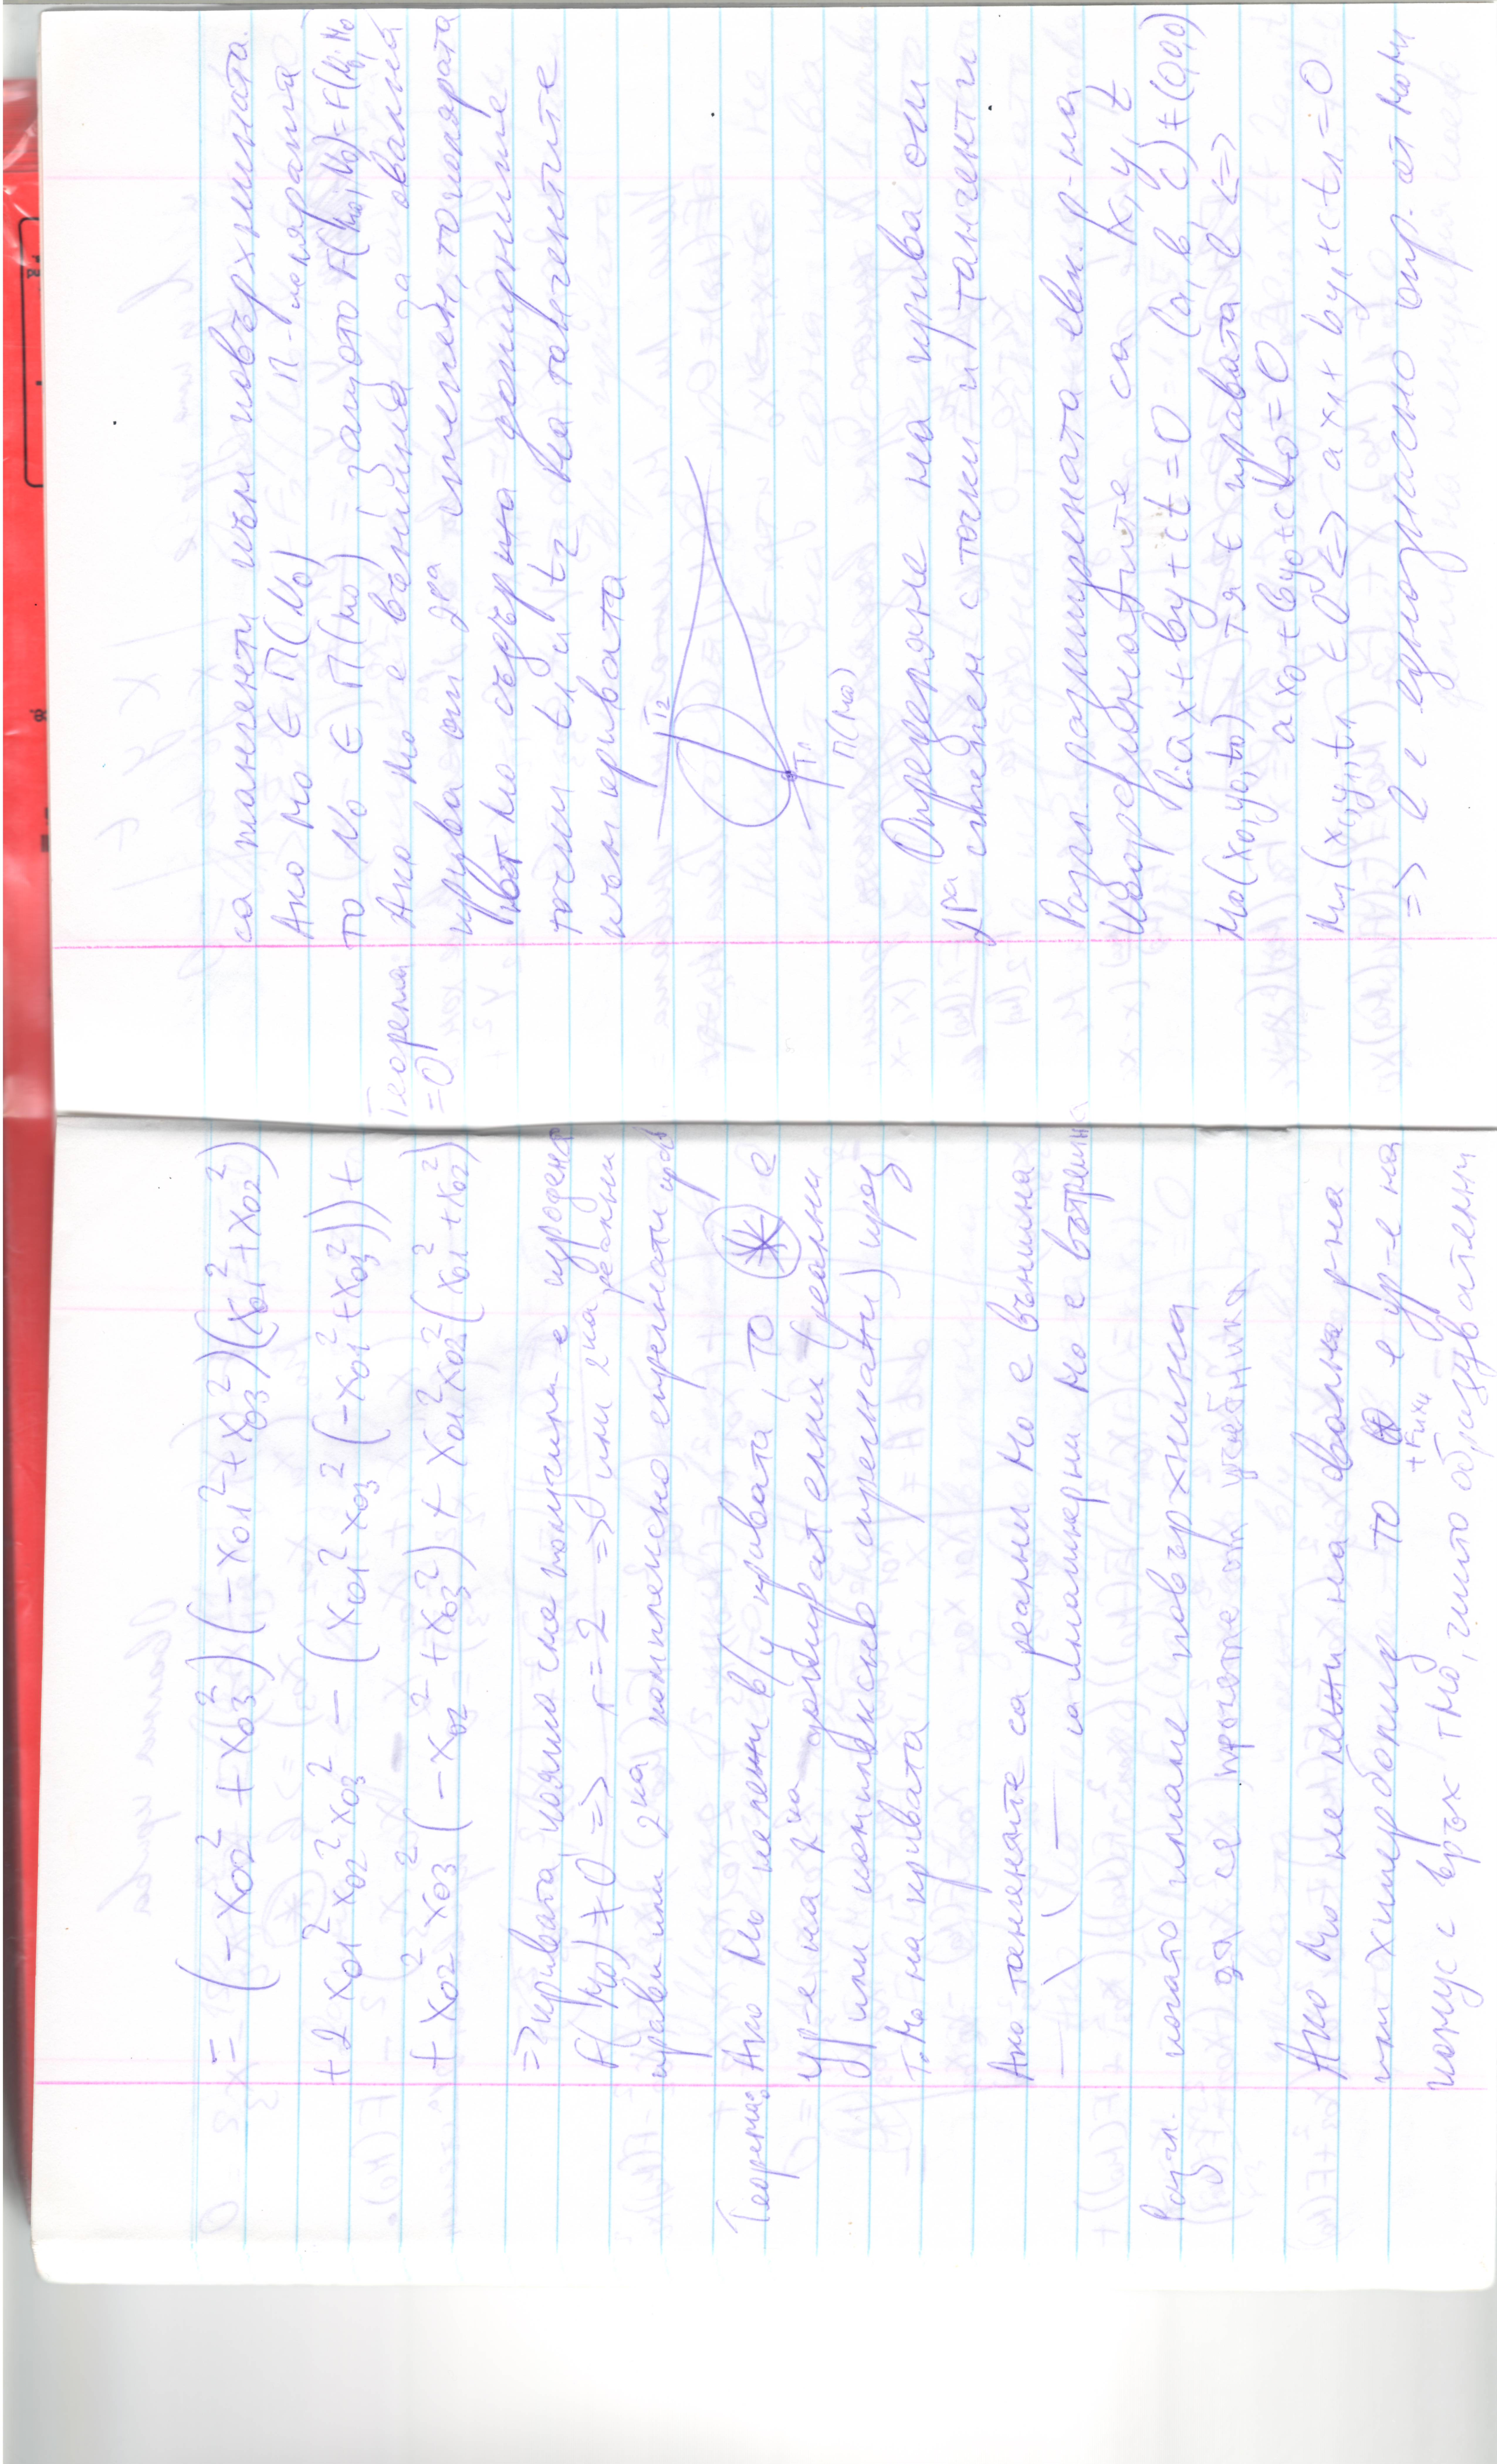 = (-x₀₂² + x₀₃²)(-x₀₁² + x₀₃²)(x₀₁² + x₀₂²)
+2 x₀₁² x₀₂² x₀₃² - (x₀₁² x₀₃² (-x₀₁² + x₀₃²)) +
+ x₀₂² x₀₃² (-x₀₂² + x₀₃²) + x₀₁² x₀₂² (x₀₁² + x₀₂²)
=> кривата, която сме получили е изродена
F(M₀) ≠ 0 => r = 2 => или 2ка реални
прави или 2ка комплексно спрегнати прави
Теорема: Ако M₀ не лежи в/у кривата, то (*) е
ур-е на 2ка допирателни (реални
или комплексно спрегнати) през
т. M₀ на кривата
Ако тангентите са реални M₀ е външна
— || — имагинерни M₀ е вътрешна
Разгл. когато имаме повърхнина
да се прочете от учебника
Ако M₀ не лежи на двойна р-на
или хиперболид то (*) е ур-е на
конус с връх т M₀, чиито образувателни
са тангенти към повърхнината.
Ако M₀ ∈ П(N₀) П - полярата
то N₀ ∈ П(M₀) защото F(M₀, N₀) = F(N₀, M₀)
Теорема Ако M₀ е външна за овална
=0
крива от 2ра степен, то полярата
на т M₀ съдържа допирните
точки t₁ и t₂ на тангентите
към кривата
T₂
T₁
П(M₀)
Определяне на крива от
2ра степен с точки и/тангенти
Разгл. разширената евкл. р-на
Координатите са x, y, t
l: ax + by + ct = 0 (a, b, c) ≠ (0,0,0)
M₀(x₀, y₀, t₀) тя ∈ правата l <=>
ax₀ + by₀ + ct₀ = 0
M₁(x₁, y₁, t₁) ∈ l <=> ax₁ + by₁ + ct₁ = 0
=> l е еднозначно опр. от M₀ M₁